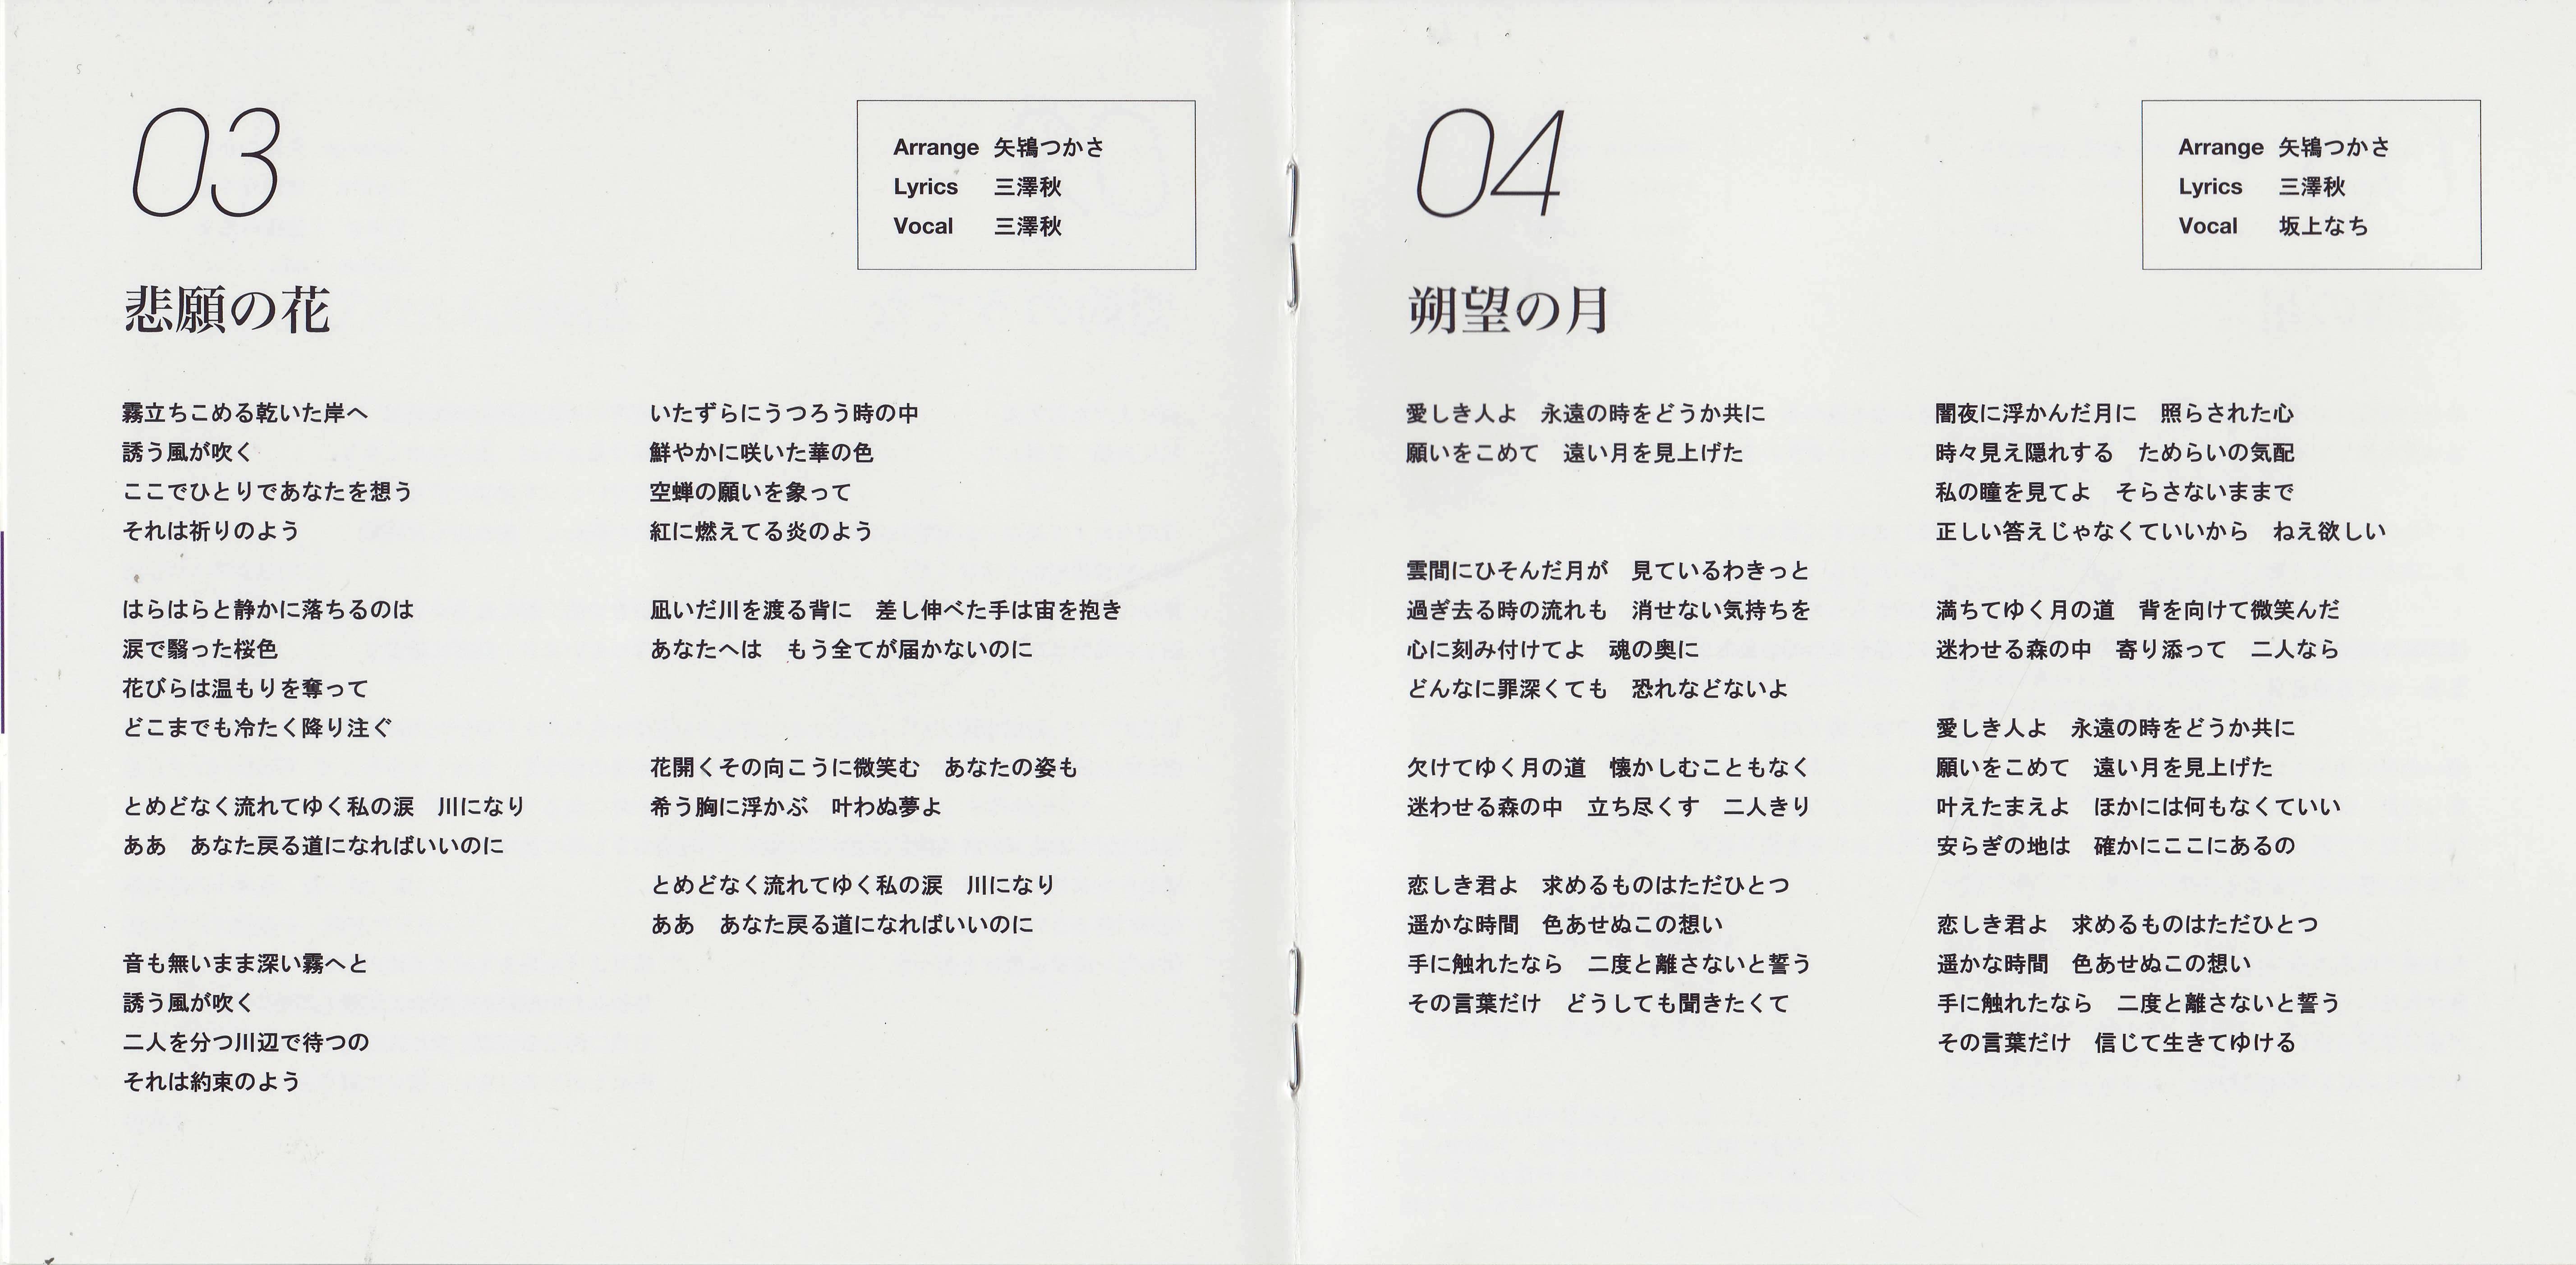 03
悲願の花
Arrange 矢鴇つかさ
Lyrics 三澤秋
Vocal 三澤秋
霧立ちこめる乾いた岸へ
誘う風が吹く
ここでひとりであなたを想う
それは祈りのよう
はらはらと静かに落ちるのは
涙で翳った桜色
花びらは温もりを奪って
どこまでも冷たく降り注ぐ
とめどなく流れてゆく私の涙　川になり
ああ　あなた戻る道になればいいのに
音も無いまま深い霧へと
誘う風が吹く
二人を分つ川辺で待つの
それは約束のよう
いたずらにうつろう時の中
鮮やかに咲いた華の色
空蝉の願いを象って
紅に燃えてる炎のよう
凪いだ川を渡る背に　差し伸べた手は宙を抱き
あなたへは　もう全てが届かないのに
花開くその向こうに微笑む　あなたの姿も
希う胸に浮かぶ　叶わぬ夢よ
とめどなく流れてゆく私の涙　川になり
ああ　あなた戻る道になればいいのに
04
朔望の月
Arrange 矢鴇つかさ
Lyrics 三澤秋
Vocal 坂上なち
愛しき人よ　永遠の時をどうか共に
願いをこめて　遠い月を見上げた
雲間にひそんだ月が　見ているわきっと
過ぎ去る時の流れも　消せない気持ちを
心に刻み付けてよ　魂の奥に
どんなに罪深くても　恐れなどないよ
欠けてゆく月の道　懐かしむこともなく
迷わせる森の中　立ち尽くす　二人きり
恋しき君よ　求めるものはただひとつ
遥かな時間　色あせぬこの想い
手に触れたなら　二度と離さないと誓う
その言葉だけ　どうしても聞きたくて
闇夜に浮かんだ月に　照らされた心
時々見え隠れする　ためらいの気配
私の瞳を見てよ　そらさないままで
正しい答えじゃなくていいから　ねえ欲しい
満ちてゆく月の道　背を向けて微笑んだ
迷わせる森の中　寄り添って　二人なら
愛しき人よ　永遠の時をどうか共に
願いをこめて　遠い月を見上げた
叶えたまえよ　ほかには何もなくていい
安らぎの地は　確かにここにあるの
恋しき君よ　求めるものはただひとつ
遥かな時間　色あせぬこの想い
手に触れたなら　二度と離さないと誓う
その言葉だけ　信じて生きてゆける